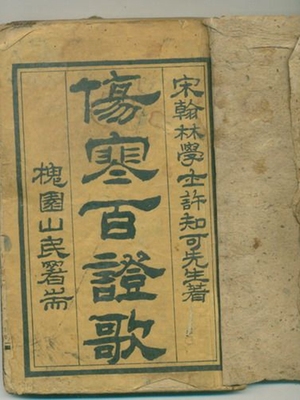 宋翰林學士許知可先生著
傷寒百證歌
槐園山民署耑